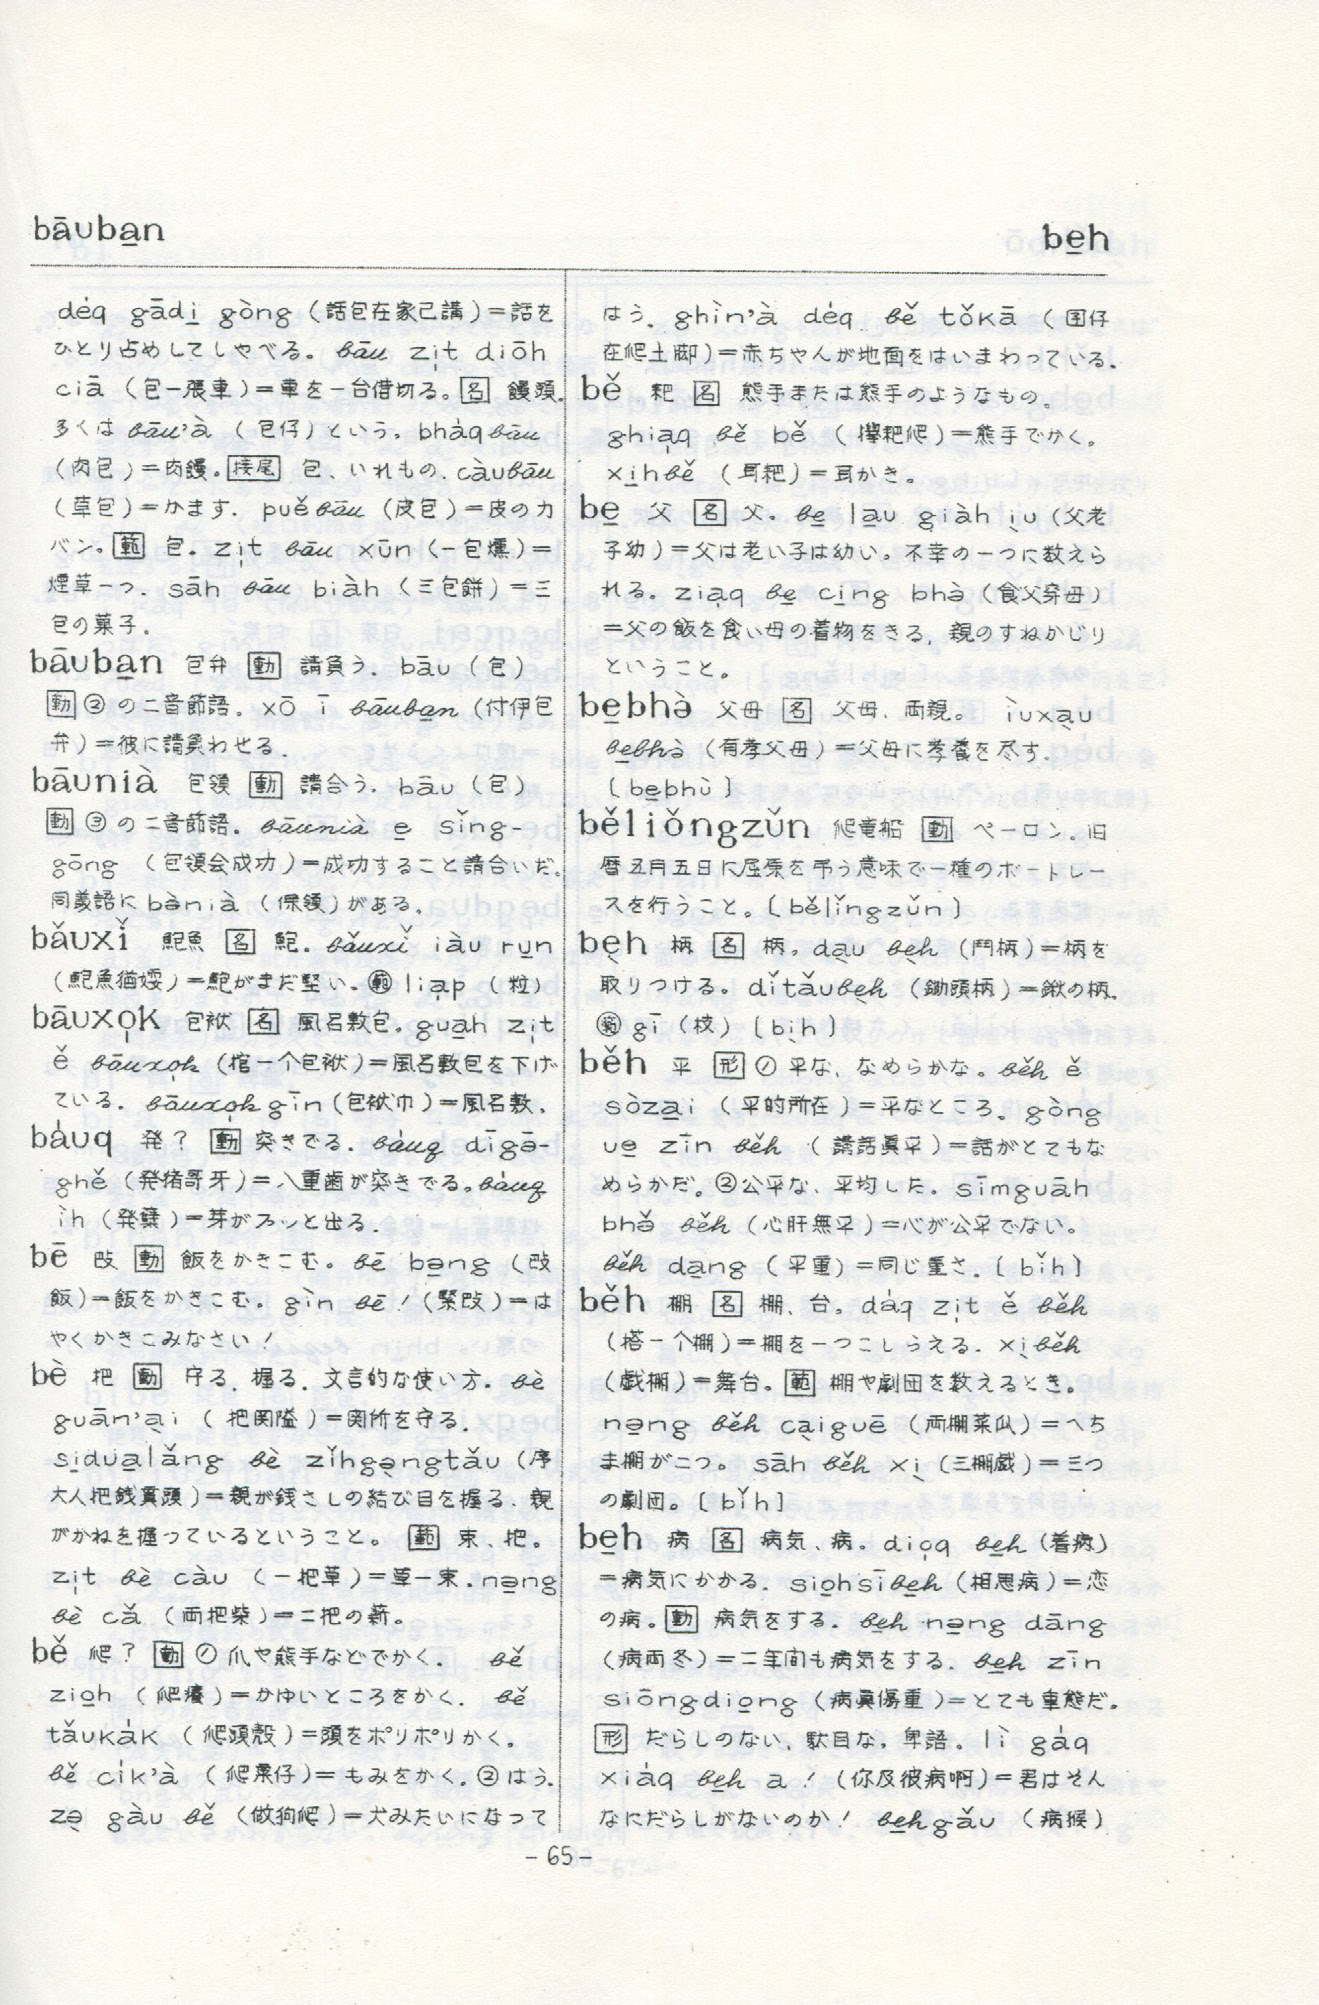 bāuba̱n
be̱h
dėq gādi̱ gòng (話包在家己講)＝話を
ひとり占めしてしやべる。bāu zi̩t diōh
ciā (包一張車)＝車を一台借切る。[名] 饅頭.
多くは bāu’à (包仔) という. bháqbāu
(肉包)＝肉饅。[接尾] 包、いれもの. càubāu
(草包)＝かます. puěbāu (皮包)＝皮のカ
バン。[範] 包. zi̩t bāu xūn (一包燻)＝
煙草一つ. sāh bāu biàh (三包餅)＝三
包の菓子.
bāuba̱n 包弁 [動] 請負う. bāu (包)
[動]②の二音節語. xō ī bāuba̱n (付伊包
弁)＝彼に請負わせる.
bāunià 包領 [動] 請合う. bāu (包)
[動]③の二音節語. bāunià e̱ sǐng-
gōng (包領会成功)＝成功すること請合いだ.
同義語に bànià (保領) がある.
bǎuxǐ 鮑魚 [名] 鮑. bǎuxǐ iàu ru̱n
(鮑魚猶𡟓)＝鮑がまだ堅い. 範 lia̩p (粒)
bāuxo̩k 包袱 [名] 風呂敷包. gua̱h zi̩t
ě bāuxo̩k (捾一个包袱)＝風呂敷包を下げ
ている. bāuxo̩kgīn (包袱巾)＝風呂敷.
bȧuq 発？ [動] 突きでる. bȧuq dīgə̄-
ghě (発猪哥牙)＝八重歯が突きでる。bȧuq
ìh (発𧃑)＝芽がスッと出る.
bē 㧊 [動] 飯をかきこむ. bē bə̱ng (㧊
飯)＝飯をかきこむ. gìn bē! (緊㧊)＝は
やくかきこみなさい!
bè 把 [動] 守る. 握る. 文言的な使い方. bè
guān’a̩i (把関隘)＝関所を守る.
si̱dua̱lǎng bè zǐhgə̩ngtǎu (序
大人把銭貫頭)＝親が銭さしの結び目を握る. 親
がかねを握っているということ。[範] 束、把。
zi̩t bè càu (一把草)＝草一束. nə̱ng
bè cǎ (両把柴)＝二把の薪。
bě 爬？ [動] ① 爪や熊手などでかく. bě
zio̱h (爬癢)＝かゆいところをかく. bě
tǎukȧk (爬頭殻)＝頭をポリポリかく。
bě cík’à (爬粟仔)＝もみをかく. ②はう.
zə̩ gàu bě (做狗爬)＝犬みたいになって
はう. ghìn’à dėq bě tǒkā (囝仔
在爬土脚)＝赤ちやんが地面をはいまわっている.
bě 耙 [名] 熊手または熊手のようなもの。
ghia̩q bě bě (攑耙爬)＝熊手でかく。
xi̱hbě (耳耙)＝耳かき。
be̱ 父 [名] 父. be̱ la̱u giàh i̩u (父老
子幼)＝父は老い子は幼い。不幸の一つに数えら
れる. zia̩q be̱ ci̱ng bhà (食父穿母)
＝父の飯を食い母の着物をきる. 親のすねかじり
ということ。
be̱bhə̀ 父母 [名] 父母、両親。ìuxa̩u
be̱bhə̀ (有孝父母)＝父母に孝養を尽す.
〔be̱bhù〕
běliǒngzǔn 爬竜船 [動] ペーロン. 旧
暦五月五日に屈原を弔う意味で一種のボートレー
スを行うこと。〔bělǐngzǔn〕
be̩h 柄 [名] 柄。da̩u be̩h (鬥柄)＝柄を
取りつける。dǐtǎube̩h (鋤頭柄)＝鍬の柄.
範 gī (枝)〔bi̩h〕
běh 平 [形] ①平な、なめらかな. běh ě
sòza̱i (平的所在)＝平なところ. gòng
ue̱ zīn běh (講話眞平)＝話がとてもな
めらかだ。②公平な、平均した. sīmguāh
bhǒ běh (心肝無平)＝心が公平でない。
běh da̱ng (平重)＝同じ重さ.〔bǐh〕
běh 棚 [名] 棚、台。dȧq zi̩t ě běh
(搭一个棚)＝棚を一つこしらえる. xi̩běh
(戯棚)＝舞台。[範] 棚や劇団を数えるとき。
nə̱ng běh ca̩iguē (両棚菜瓜)＝へち
ま棚が二つ。sāh běh xi̩ (三棚戯)＝三つ
の劇団。〔bǐh〕
be̱h 病 [名] 病気、病。dio̩q be̱h (着病)
＝病気にかかる. sio̱hsībe̱h (相思病)＝恋
の病。[動] 病気をする. be̱h nə̱ng dāng
(病両冬)＝二年間も病気をする. be̱h zīn
siōngdio̱ng (病眞傷重)＝とても重態だ.
[形] だらしのない、駄目な. 卑語。lì gȧq
xiȧq be̱h a! (你及彼病啊)＝君はそん
なにだらしがないのか! be̱hgǎu (病猴)
-65-